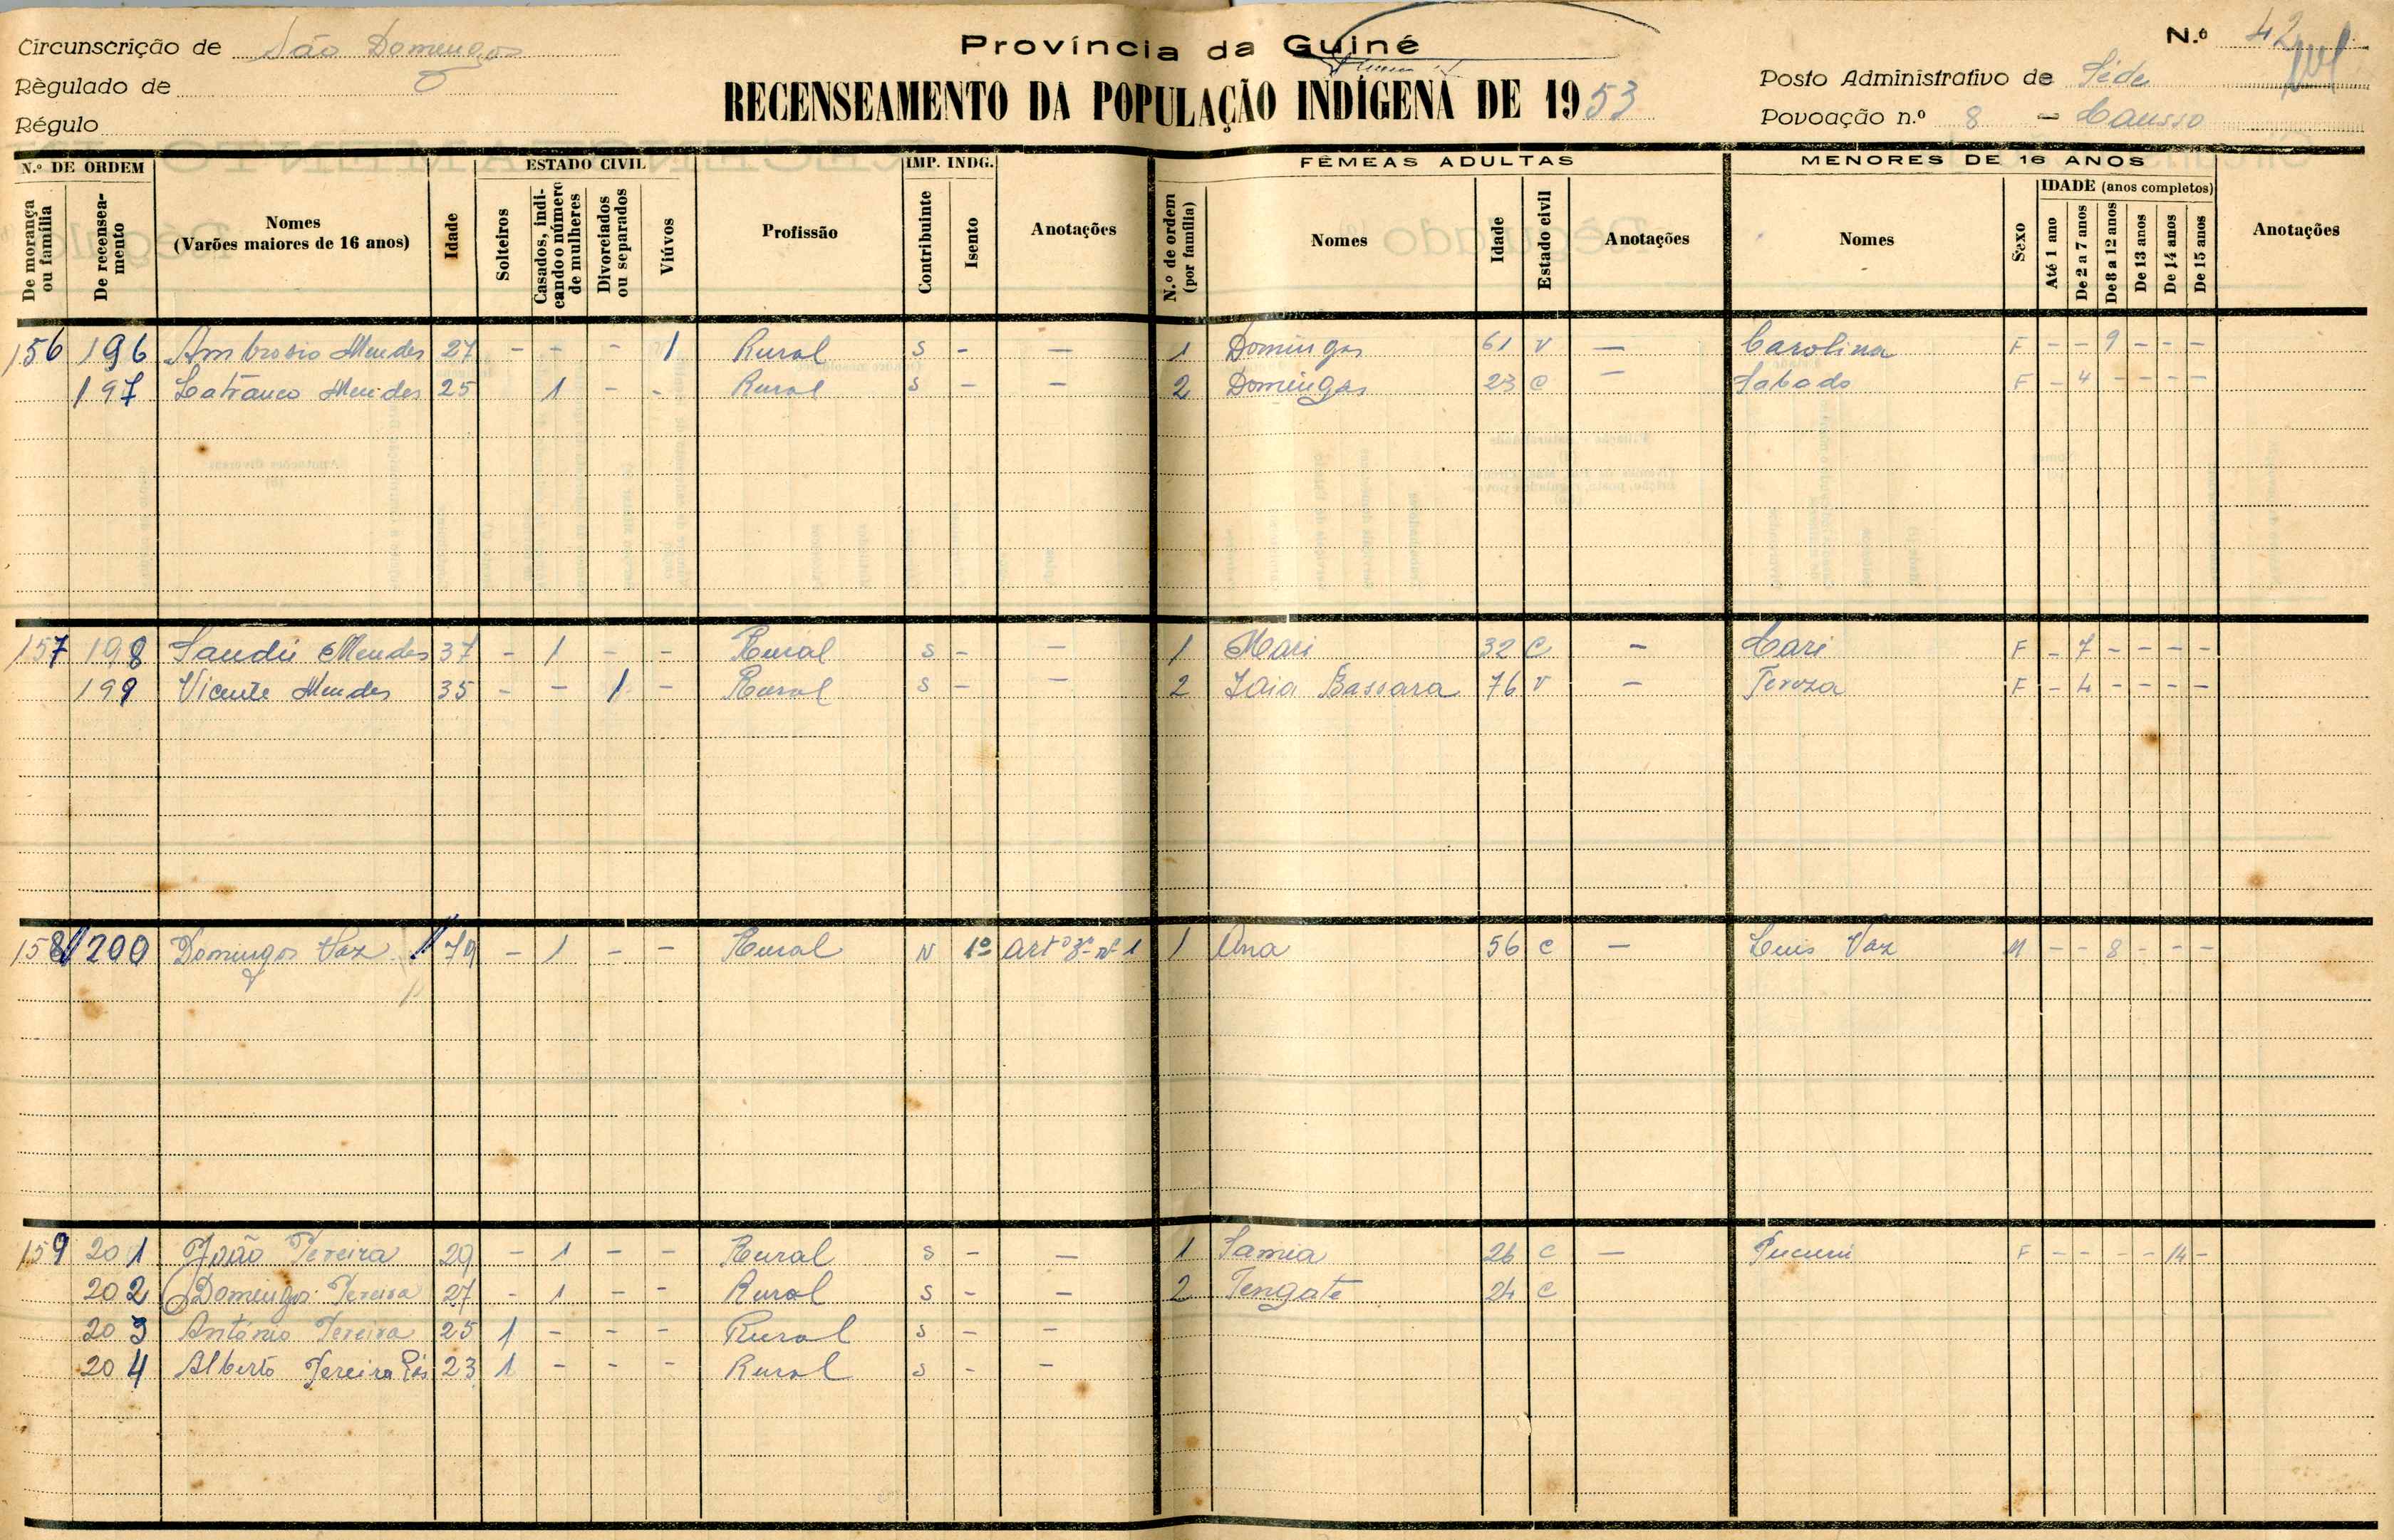 Circunscrição de São Domingos
Régulado de
Régulo
Província da Guiné
RECENSEAMENTO DA POPULAÇÃO INDÍGENA DE 1953
N.º 42
Posto Administrativo de Séde
Povoação n.º 8 - Causso
N.º DE ORDEM
De morança ou família
De recenseamento
Nomes
(Varões maiores de 16 anos)
Idade
ESTADO CIVIL
Solteiros
Casados, indicando o número de mulheres
Divorciados ou separados
Viúvos
Profissão
IMP. INDG.
Contribuinte
Isento
Anotações
FÊMEAS ADULTAS
N.º de ordem (por família)
Nomes
Idade
Estado civil
Anotações
MENORES DE 16 ANOS
Nomes
Sexo
IDADE (anos completos)
Até 1 ano
De 2 a 7 anos
De 8 a 12 anos
De 13 anos
De 14 anos
De 15 anos
Anotações
156 196 Ambrosio Mendes 27 - - - 1 Rural S - — 1 Domingas 61 V — Carolina F - - 9 - - -
197 Mendes 25 1 - - Rural S - — 2 Domingas 23 C — Sabado F - 4 - - - -
157 198 Saudú Mendes 37 - 1 - - Rural S - — 1 Mari 32 C - Cari F - 7 - - - -
199 Vicente Mendes 35 - - 1 - Rural S - — 2 Bassara 76 V - Tereza F - 4 - - - -
158 200 Domingos Vaz 79 - 1 - - Rural N 1º artº 3º nº 1 1 Ana 56 C — Luis Vaz M - - 8 - - -
159 201 João Pereira 29 - 1 - - Rural S - — 1 Samia 26 C — F - - - - 14 -
202 Domingos Pereira 27 - 1 - - Rural S - — 2 Tengate 24 C
203 António Pereira 25 1 - - - Rural S - —
204 Alberto Pereira 23 1 - - - Rural S - —